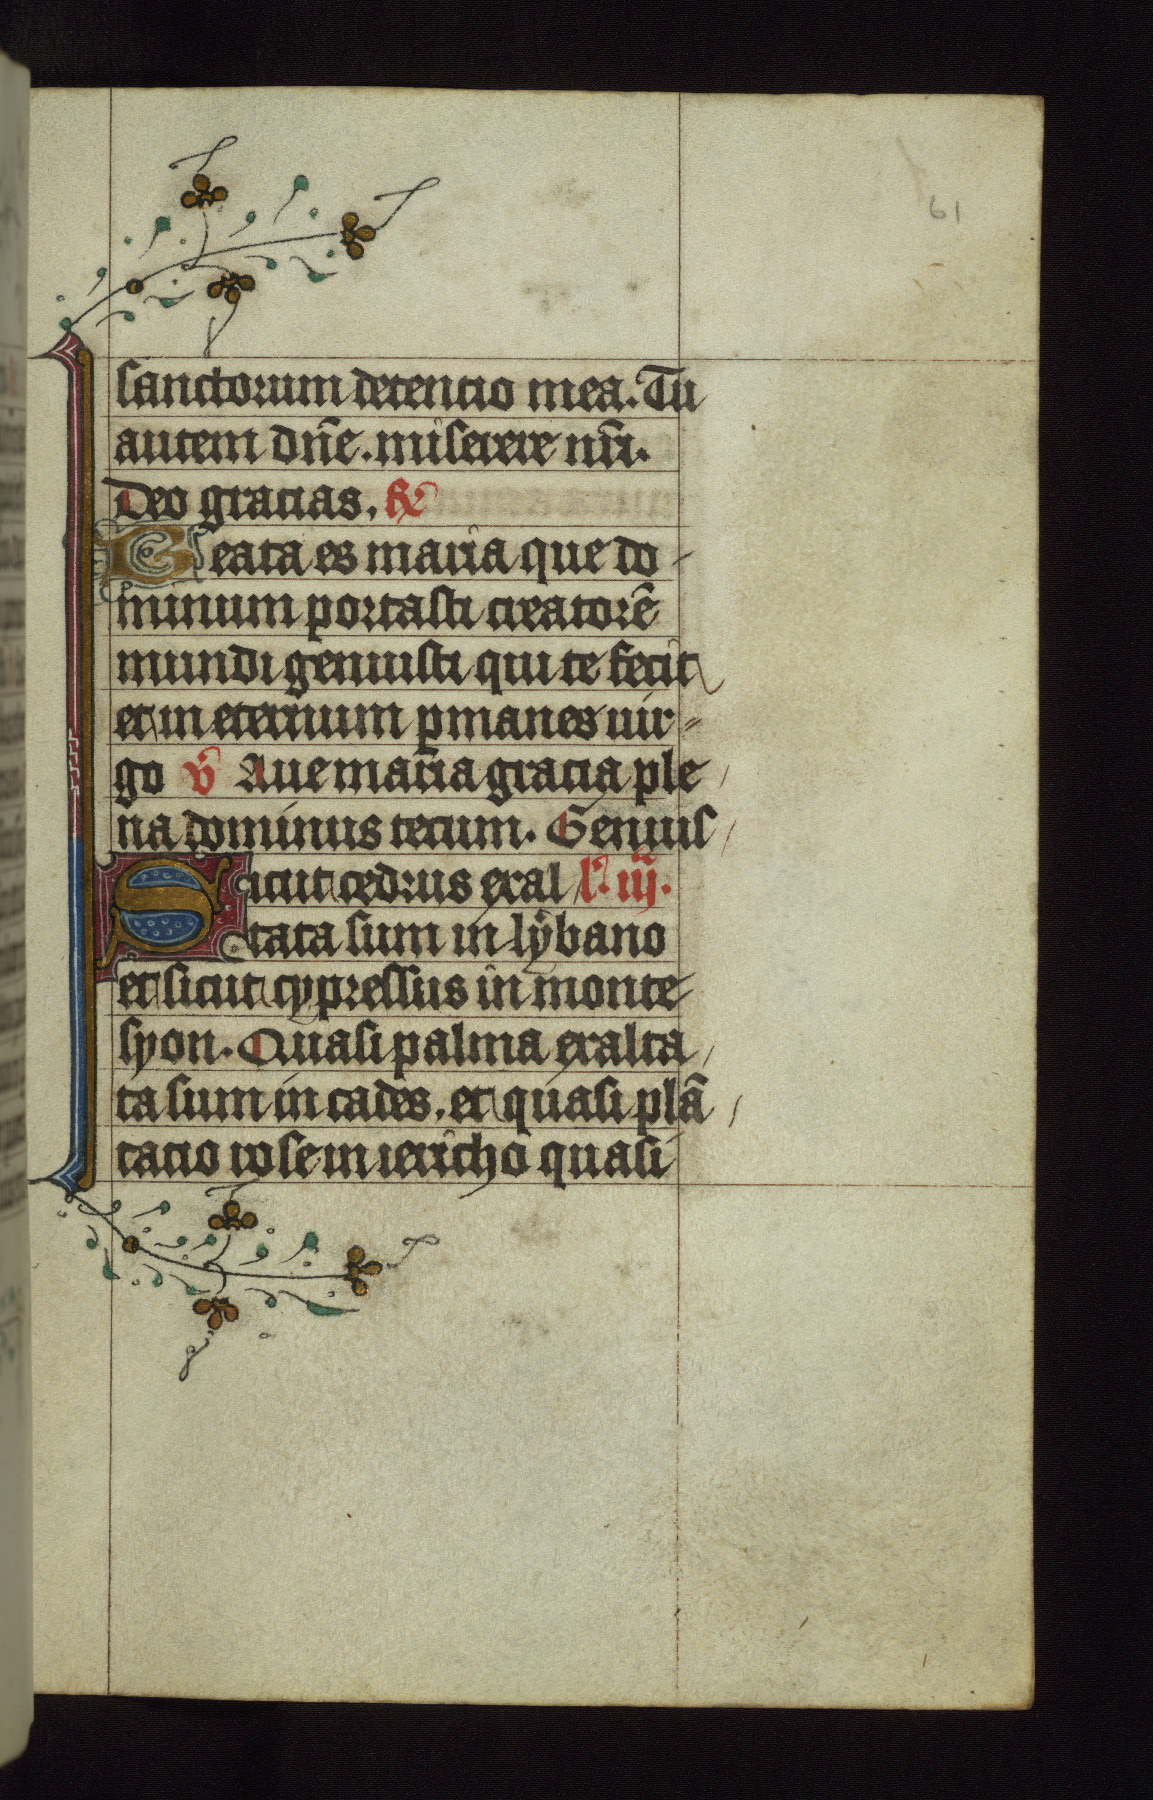 61
sanctorum detencio mea. Tu
autem dñe. miserere nr̃i.
Deo gracias. R̃
Beata es maria que do-
minum portasti creatorē
mundi genuisti qui te fecit
et in eternum pmanes uir-
go v̄ Aue maria gracia ple
na dominus tecum. Genuis
Sicut cedrus exal l'. iij.
tata sum in lybano
et sicut cypressus in monte
syon. Quasi palma exalta
ta sum in cades. et quasi plā
tacio rose in iericho quasi